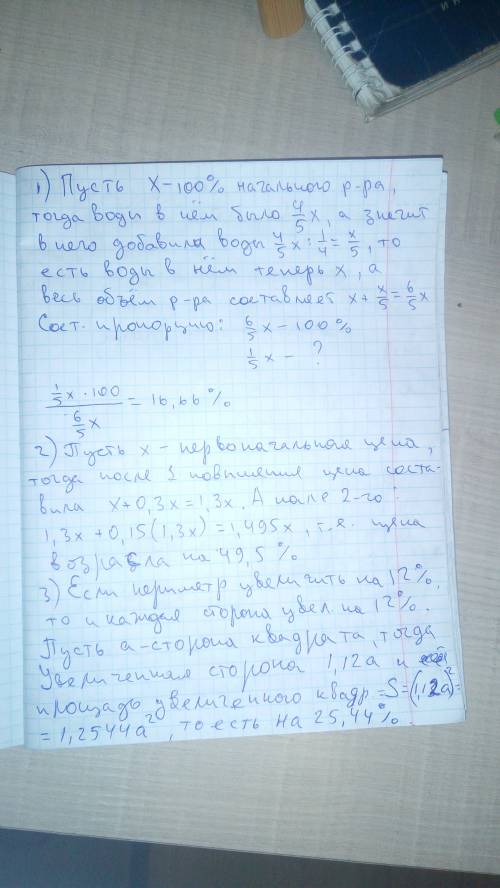 1) Пусть x – 100% начального р-ра,
тогда воды в нём было 4/5 x, а значит
в него добавили воды 4/5 x : 1/4 = x/5, то
есть воды в нём теперь x, а
весь объём р-ра составляет x + x/5 = 6/5 x
Сост. пропорцию: 6/5 x – 100%
1/5 x – ?
(1/5 x · 100) / (6/5 x) = 16,66%
2) Пусть x – первоначальная цена,
тогда после 1 повышения цена соста-
вила x+0,3x=1,3x. А после 2-го:
1,3x+0,15(1,3x)=1,495x, т.е. цена
возрасла на 49,5%
3) Если периметр увеличить на 12%,
то и каждая сторона увел. на 12%.
Пусть a – сторона квадрата, тогда
Увеличенная сторона 1,12a и
площадь увеличенного квадр = S = (1,12a)² =
= 1,2544a², то есть на 25,44%